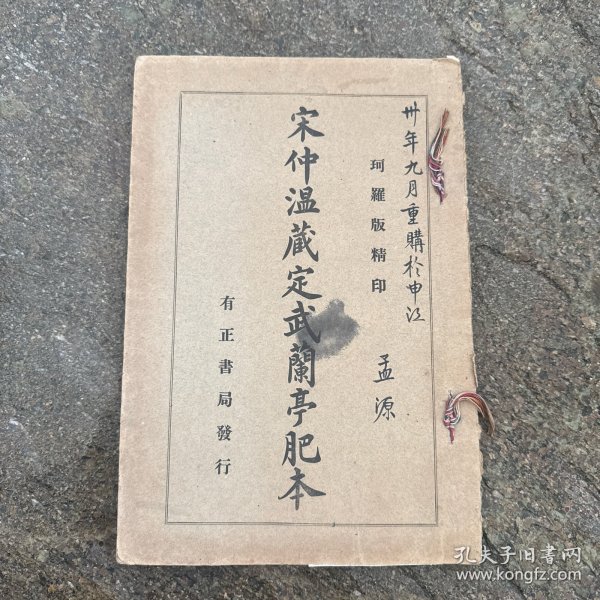 卅年九月重購於申江
孟源
珂羅版精印
宋仲温藏定武蘭亭肥本
有正書局發行
孔夫子旧書网
www.kongfz.com